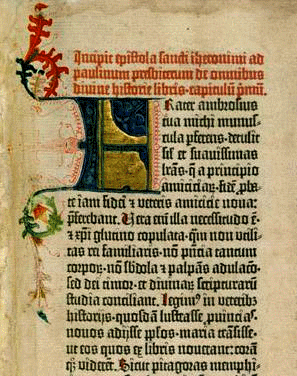 Incipit epistola sancti iheronimi ad
paulinum presbiterum de omnibus
divine historie libris. capitulū pmū.
Frater ambrosius
tua michi munus⸗
cula pferens. detulit
sil et suavissimas
lrās. q a principio
amiciciaꝝ. fidē pba⸗
te iam fidei et veteris amicicie nova:
pferebant. Vera enī illa necessitudo ē.
et xpi glutino copulata. qm non utili⸗
tas rei familiaris. nō pncia tantum
corporꝝ. nō sbdola et palpās adulacō.
sed dei timor. et divinaꝝ scripturarū
studia conciliant. Legim⁹ in veteribꝫ
historijs. quosdā lustrasse puincias.
novos adijsse pplos. maria trāsisse.
ut eos quos ex libris noverant: corā
qꝫ viderēt. Sicut pitagoras memphi⸗